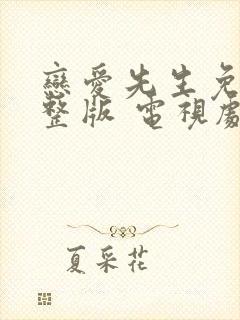 戀愛先生免
整版 電視劇
夏采花